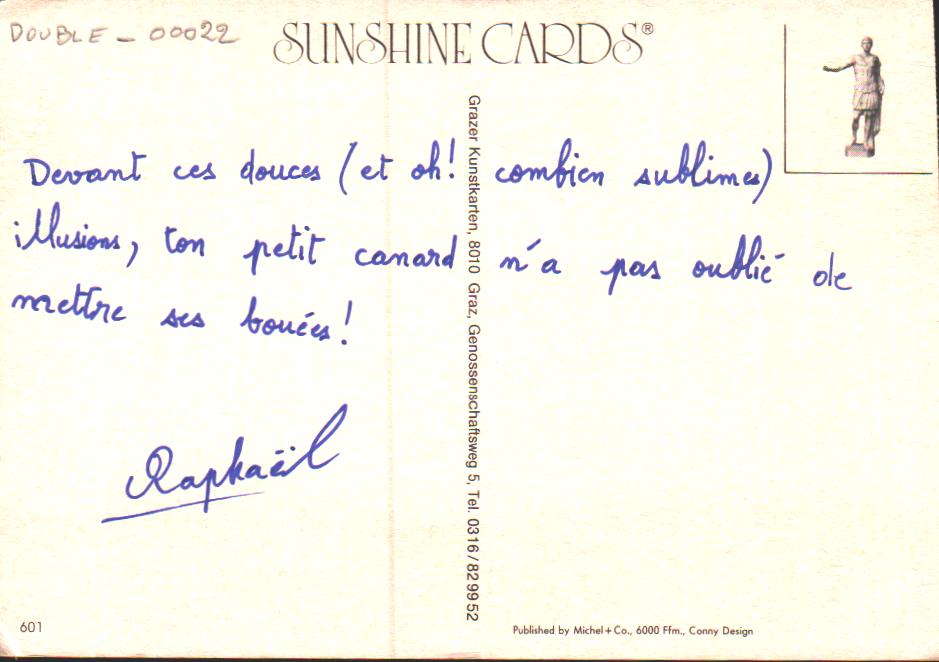 DOUBLE - 00022
SUNSHINE CARDS®
Devant ces douces (et oh! combien sublimes)
illusions, ton petit canard n'a pas oublié de
mettre ses bouées!
Raphaël
Grazer Kunstkarten, 8010 Graz, Genossenschaftsweg 5, Tel. 0316/829952
601
Published by Michel+Co., 6000 Ffm., Conny Design